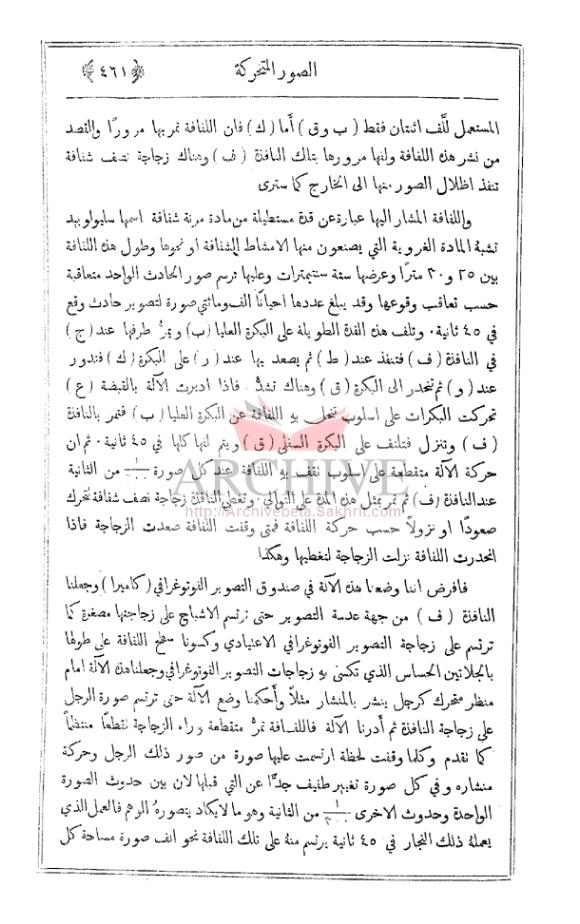 الصور المتحركة
﴿٤٦١﴾
المستعمل للَّف اثنتان فقط ( ب و ق ) أما ( ك ) فان اللفافة تمر بها مرورًا والقصد
من نشر هذه اللفافة ولفها مرورها بتلك النافذة ( ف ) وهناك زجاجة نصف شفافة
تنفذ اظلال الصور منها الى الخارج كما سترى
واللفافة المشار اليها عبارة عن قدة مستطيلة من مادة مرنة شفافة اسمها سليولويد
تشبهُ المادة الغروية التي يصنعون منها الامشاط الشفافة او نحوها وطول هذه اللفافة
بين ٢٥ و ٣٠ مترًا وعرضها ستة سنتيمترات وعليها ترسم صور الحادث الواحد متعاقبة
حسب تعاقب وقوعها وقد يبلغ عددها احيانًا الف ومائتي صورة لتصوير حادث وقع
في ٤٥ ثانية . وتلف هذه القدة الطويلة على البكرة العليا ( ب ) ويمرُّ طرفها عند ( ج )
في النافذة ( ف ) فتنفذ عند ( ط ) ثم يصعد بها عند ( ر ) على البكرة ( ك ) فتدور
عند ( و ) ثم تنحدر الى البكرة ( ق ) وهناك تشدُّ . فاذا اديرت الآلة بالقبضة ( ع )
تحركت البكرات على اسلوب تنحل به اللفافة عن البكرة العليا ( ب ) فتمر بالنافذة
( ف ) وتنزل فتلتف على البكرة السفلى ( ق ) ويتم لفها كلها في ٤٥ ثانية . ثم ان
حركة الآلة متقطعة على اسلوب تقف به اللفافة عند كل صورة من الثانية
عند النافذة ( ف ) ثم تمر بمثل هذه المدة على التوالي . وتغطي النافذة زجاجة نصف شفافة تتحرك
صعودًا او نزولاً حسب حركة اللفافة فمتى وقفت اللفافة صعدت الزجاجة فاذا
انحدرت اللفافة نزلت الزجاجة لتغطيها وهكذا
فافرض اننا وضعنا هذه الآلة في صندوق التصوير الفوتوغرافي ( كاميرا ) وجعلنا
النافذة ( ف ) من جهة عدسة التصوير حتى ترتسم الاشباح على زجاجتها مصغرة كما
ترتسم على زجاجة التصوير الفوتوغرافي الاعتيادي وكسونا سطح اللفافة على طولها
بالجلاتين الحساس الذي تكسى به زجاجات التصوير الفوتوغرافي وجعلنا هذه الآلة امام
منظر متحرك كرجل ينشر بالمنشار مثلاً وأحكمنا وضع الآلة حتى ترتسم صورة الرجل
على زجاجة النافذة ثم أدرنا الآلة فاللفافة تمرُّ متقطعة وراء الزجاجة تقطعًا منتظمًا
كما تقدم وكلما وقفت لحظة ارتسمت عليها صورة من صور ذلك الرجل وحركة
منشاره وفي كل صورة تغيير طفيف جدًّا عن التي قبلها لان بين حدوث الصورة
الواحدة وحدوث الاخرى من الثانية وهو ما لا يكاد يتصورهُ الوهم فالعمل الذي
يعملهُ ذلك النجار في ٤٥ ثانية يرتسم منهُ على تلك اللفافة نحو الف صورة مساحة كل
ARCHIVE
http://Archivebeta.Sakhrit.com